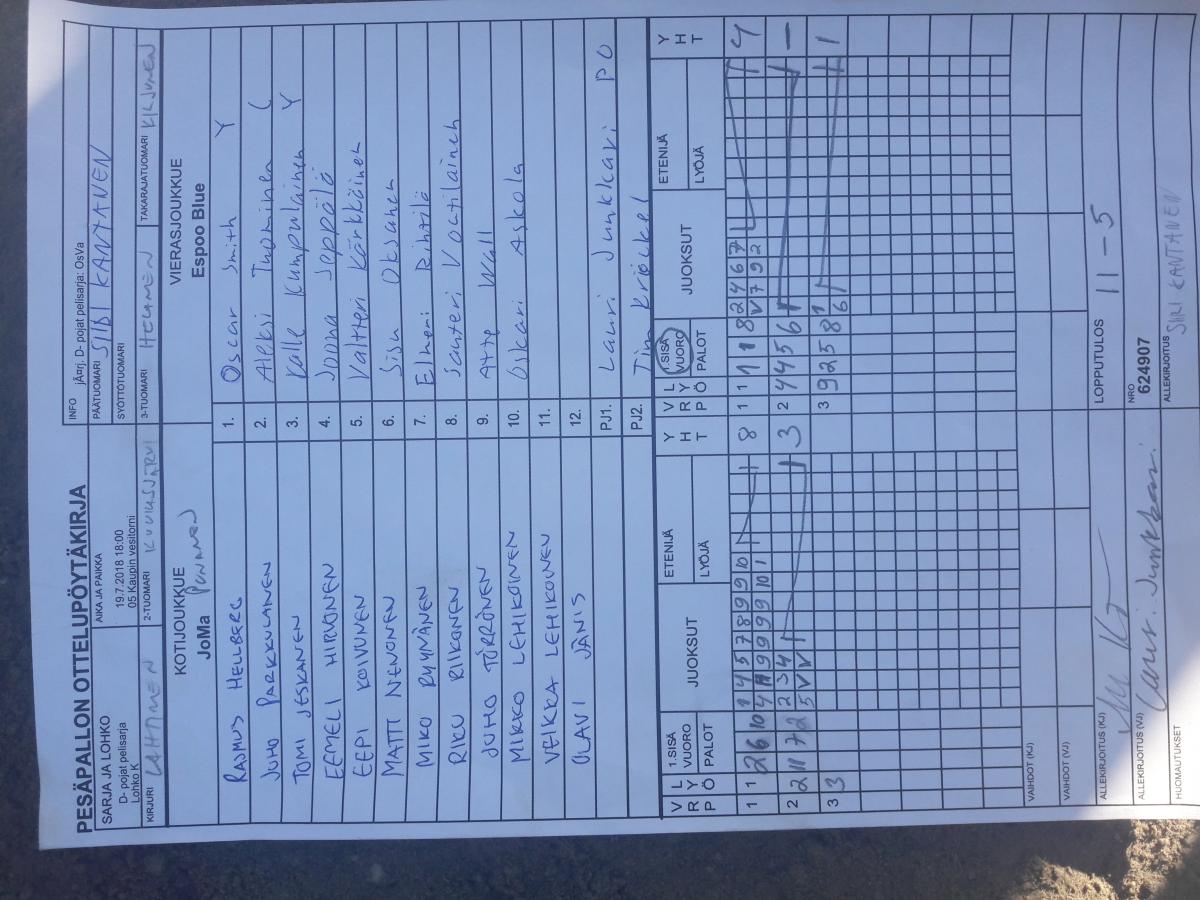 PESÄPALLON OTTELUPÖYTÄKIRJA
SARJA JA LOHKO
D- pojat pelisarja
Lohko K
AIKA JA PAIKKA
19.7.2018 18:00
05 Kaupin vesitorni
INFO jÄ¤rj. D- pojat pelisarja: OsVa
PÄÄTUOMARI SIIRI KANTANEN
SYÖTTÖTUOMARI
KIRJURI LAHTINEN
2-TUOMARI KUVIUSJÄRVI
3-TUOMARI
TAKARAJATUOMARI KILJUNEN
KOTIJOUKKUE
JoMa PUNANEN
VIERASJOUKKUE
Espoo Blue
RASMUS HELLBERG 1. Oscar Smith Y
JUHO PARKKULAINEN 2. Aleksi Tuominen C
TOMI JESKANEN 3. Kalle Kumpulainen Y
EEMELI HIRVONEN 4. Joona Seppälä
EEPI KOIVUNEN 5. Valtteri Kärkkäinen
MATTI NENONEN 6. Sisu Oksanen
MIKO RYYNÄNEN 7. Elmeri Rihtilä
RIKU RIIKONEN 8. Santeri Voutilainen
JUHO TÖRRÖNEN 9. Atte Wall
MIKKO LEHIKOINEN 10. Oskari Askola
VEIKKA LEHIKOINEN 11.
OLAVI JÄNIS 12.
PJ1. Lauri Junkkari PO
PJ2. Timi Kröckel
VRP LYÖ 1.SISÄ VUORO PALOT JUOKSUT ETENIJÄ LYÖJÄ YHT
VRP LYÖ 1.SISÄ VUORO PALOT JUOKSUT ETENIJÄ LYÖJÄ YHT
1 1 2 6 10 1 4 5 7 8 9 9 10 8
4 11 9 9 9 9 10 1
1 1 1 1 8 2 4 6 7 4
V 7 9 2
2 2 11 7 2 2 3 4 3
5 V V
2 4 4 5 6 –
3 3
3 9 2 5 8 1 1
6
VAIHDOT (KJ)
VAIHDOT (VJ)
ALLEKIRJOITUS (KJ)
LOPPUTULOS 11-5
ALLEKIRJOITUS (VJ) Lauri Junkkari
NRO
624907
HUOMAUTUKSET
ALLEKIRJOITUS
SIIRI KANTANEN